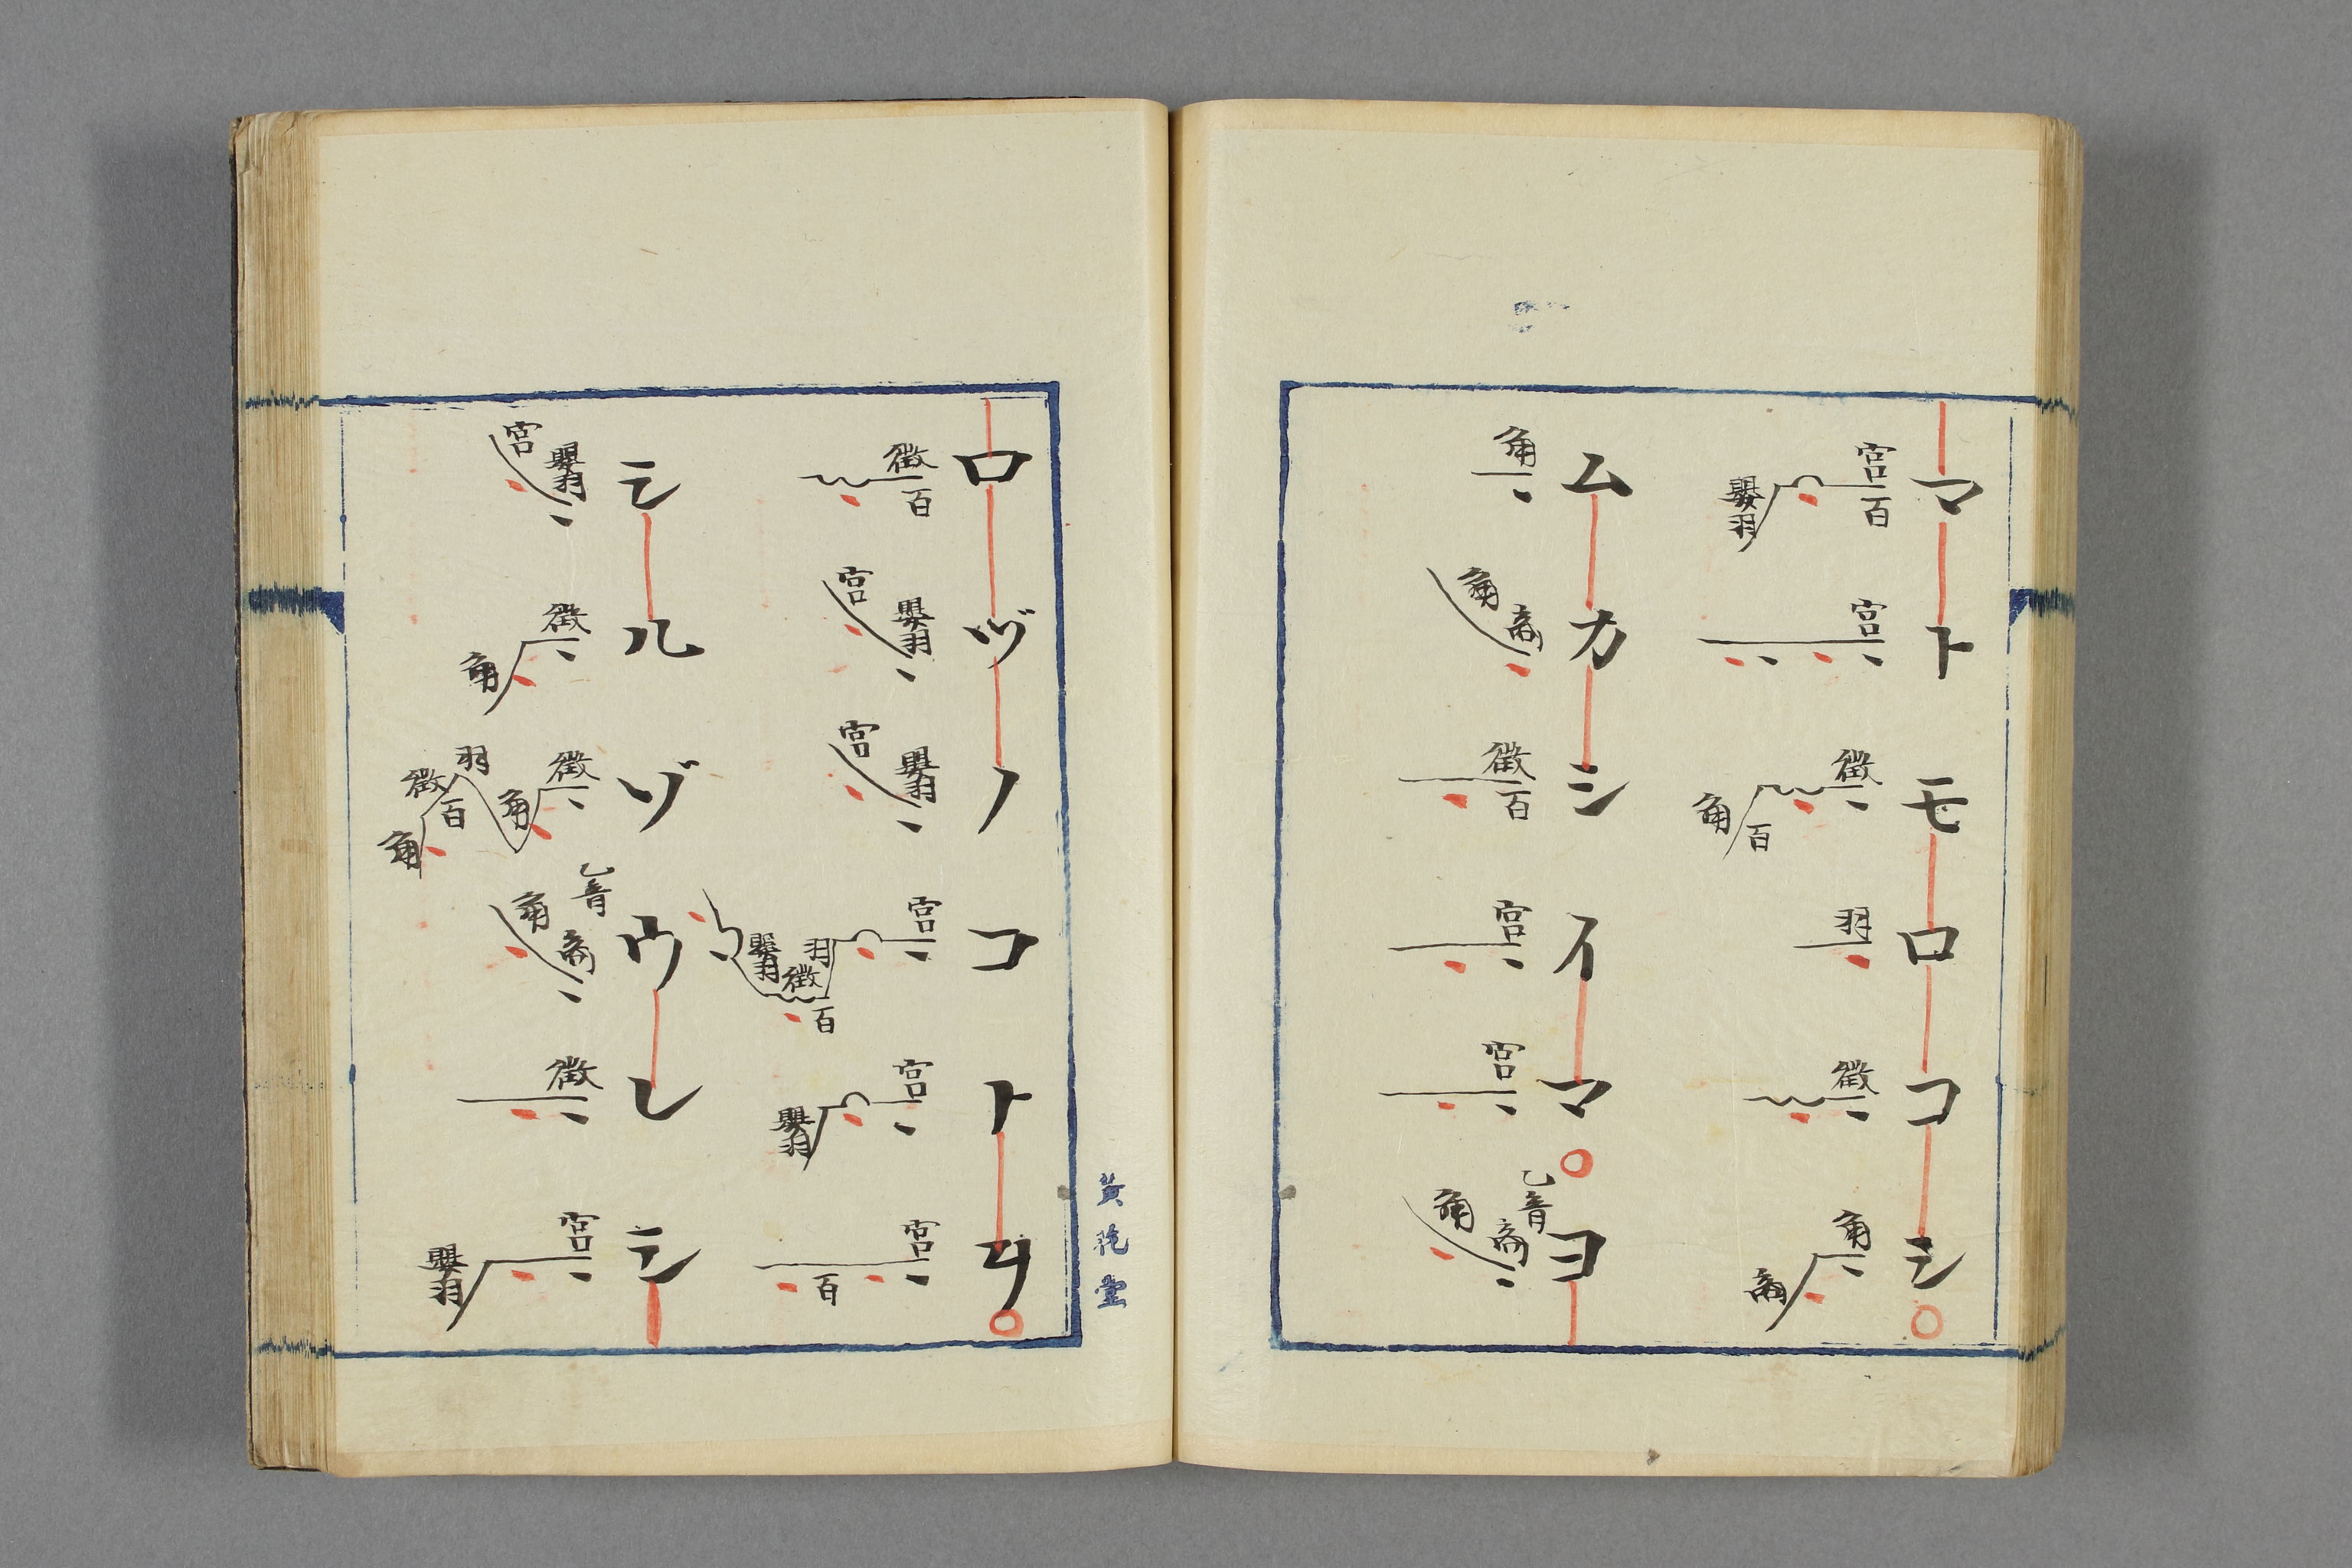 マトモロコシ○
宮百嬰羽 宮 徴百角 羽 徴 角商
ムカシイマ○ヨ
角 商角 徴百 宮 宮 乙音商角
ロヅノコトヲ○
徴百 嬰羽宮 嬰羽宮 宮羽百徴嬰羽 宮嬰羽 宮百
シルゾウレシ
嬰羽宮 徴角 徴角羽百徴角 乙音商角 徴 宮嬰羽